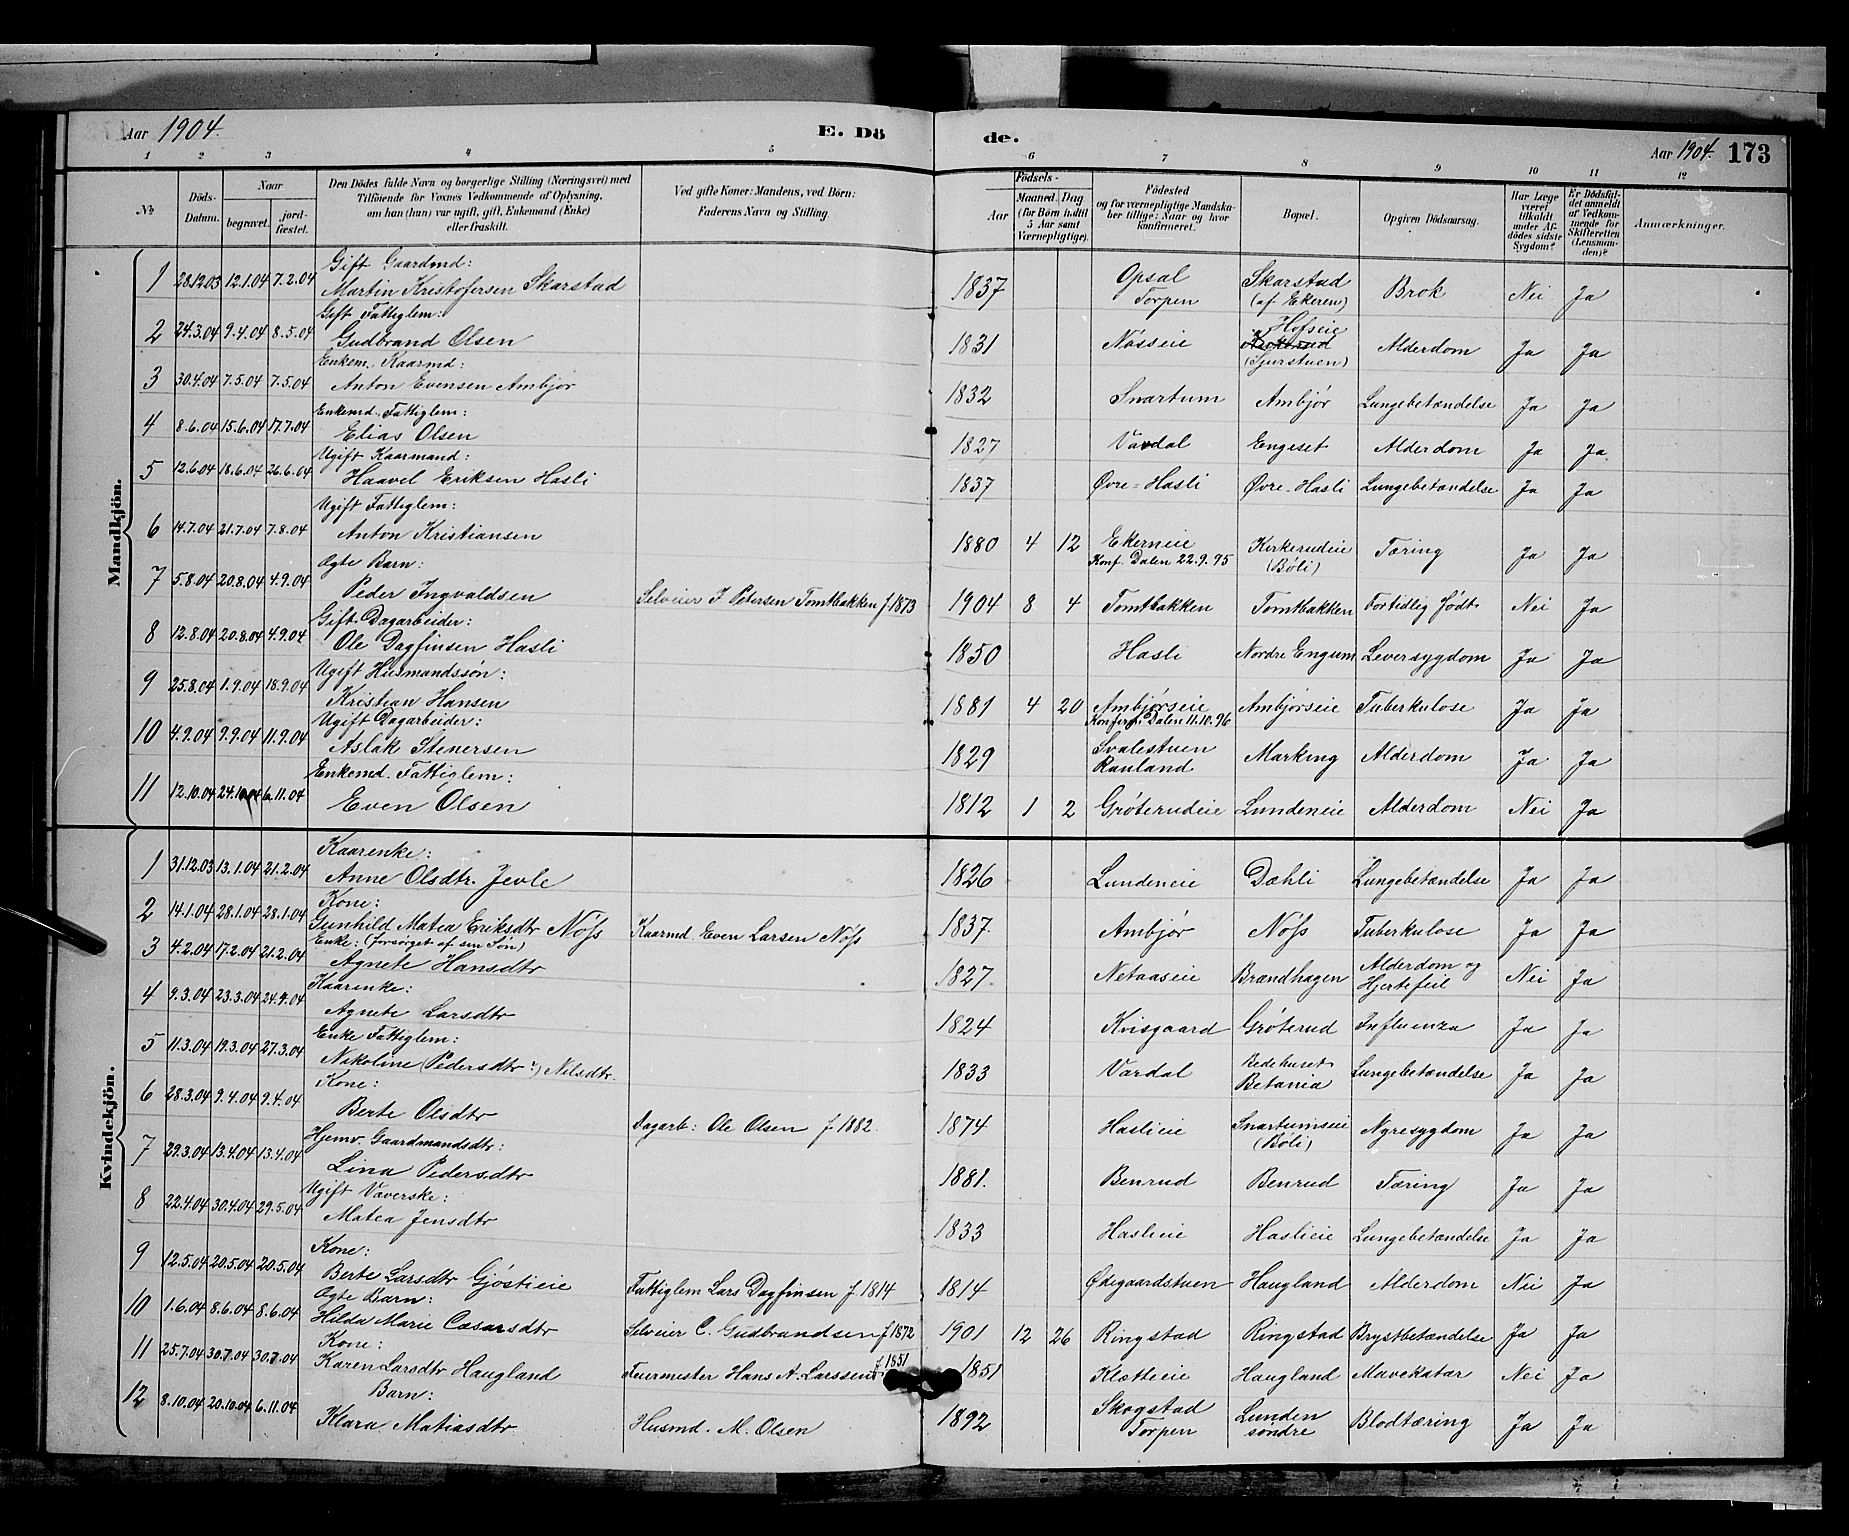 Aar 1904. E. Dö de. Aar 1904. 173
1 2 3 4 5 6 7 8 9 10 11 12
№
Döds-Datum.
Naar begravet. jordfæstet.
Den Dödes fulde Navn og borgerlige Stilling (Næringsvei) med Tilföiende for Voxnes Vedkommende af Oplysning, om han (hun) var ugift, gift, Enkemand (Enke) eller fraskilt.
Ved gifte Koner: Mandens, ved Börn: Faderens Navn og Stilling.
Födsels- Aar Maaned. Dag (for Börn indtil 5 Aar samt Værnepligtige).
Födested og for værnepligtige Mandskaber tillige: Naar og hvor konfirmeret.
Bopæl.
Opgiven Dödsaarsag.
Har Læge været tilkaldt under Afdödes sidste Sygdom?
Er Dödsfaldet anmeldt af Vedkommende for Skifteretten (Lensmanden)?
Anmærkninger.
Mandkjön.
1 28.12.03 12.1.04 7.2.04 Gift Gaardmd: Martin Kristofersen Skarstad 1837 Opsal Torpen Skarstad (af Ekeren) Brok Nei Ja
2 24.3.04 9.4.04 8.5.04 Gift Fattiglem: Gudbrand Olsen 1831 Nøsseie Hofseie (Sjurstuen) Alderdom Ja Ja
3 30.4.04 7.5.04 7.5.04 Enkem. Kaarmd: Anton Evensen Ambjør 1832 Snartum Ambjør Lungebetændelse Ja Ja
4 8.6.04 15.6.04 17.7.04 Enkemd. Fattiglem: Elias Olsen 1827 Vardal Engeset Alderdom Ja Ja
5 12.6.04 18.6.04 26.6.04 Ugift Kaarmand: Haavel Eriksen Hasli 1837 Øvre-Hasli Øvre-Hasli Lungebetændelse Ja Ja
6 14.7.04 21.7.04 7.8.04 Ugift Fattiglem: Anton Kristiansen 1880 4 12 Ekerneie Konf. Dalen 22.9.95 Kirkerudeie (Bøli) Tæring Ja Ja
7 5.8.04 20.8.04 4.9.04 Ogte Barn: Peder Ingvaldsen Selveier I. Petersen Tomtbakken f. 1873 1904 8 4 Tomtbakken Tomtbakken Fortidlig født Nei Ja
8 12.8.04 20.8.04 4.9.04 Gift Dagarbeider: Ole Dagfinsen Hasli 1850 Hasli Nordre Engum Leversygdom Ja Ja
9 25.8.04 1.9.04 18.9.04 Ugift Husmandssøn: Kristian Hansen 1881 4 20 Ambjørseie Konferm. Dalen 11.10.96 Ambjørseie Tuberkulose Ja Ja
10 4.9.04 9.9.04 11.9.04 Ugift Dagarbeider: Aslak Stenersen 1829 Svalestuen Rauland Marking Alderdom Ja Ja
11 12.10.04 24.10.04 6.11.04 Enkemd. Fattiglem: Even Olsen 1812 1 2 Grøterudeie Lundeneie Alderdom Nei Ja
Kvindekjön.
1 31.12.03 13.1.04 21.2.04 Kaarenke: Anne Olsdtr. Jevle 1826 Lundeneie Dæhli Lungebetændelse Ja Ja
2 14.1.04 28.1.04 28.1.04 Kone: Gunhild Matea Eriksdtr Nøss Kaarmd. Even Larsen Nøss 1837. Ambjør Nøss Tuberkulose Ja Ja
3 4.2.04 17.2.04 21.2.04 Enke: (forsørget af sin Søn) Agnete Hansdtr 1827. Netaaseie Brændhagen Alderdom og Hjertefeil Nei Ja
4 9.3.04 23.3.04 24.9.04 Kaarenke: Agnete Larsdtr 1824 Kvisgaard Grøterud Influenza Ja Ja
5 11.3.04 19.3.04 27.3.04 Enke Fattiglem: Nikoline (Pedersdtr?) Nilsdtr. 1833 Vardal Bedehuset Betania Lungebetændelse Ja Ja
6 28.3.04 9.4.04 9.4.04 Kone: Berte Olsdtr Dagarb: Ole Olsen f. 1882. 1874 Haslieie Snartumseie (Bøli) Nyresygdom Ja Ja
7 29.3.04 13.4.04 13.4.04 Hjemv. Gaardmandsdtr: Lina Pedersdtr 1881. Benrud Benrud Tæring Ja Ja
8 22.4.04 30.4.04 29.5.04 Ugift Væverske: Matea Jensdtr 1833 Haslieie Haslieie Lungebetændelse Ja Ja
9 12.5.04 20.5.04 20.5.04 Kone: Berte Larsdtr Gjøstieie Fattiglem Lars Dagfinsen f. 1814 1814 Ødegaardstuen Haugland Alderdom Nei Ja
10 1.6.04 8.6.04 8.6.04 Ogte Barn: Hilda Marie Casarsdtr Selveier C. Gudbrandsen f. 1872 1901 12 26 Ringstad Ringstad Brystbetændelse Ja Ja
11 25.7.04 30.7.04 30.7.04 Kone: Karen Larsdtr Haugland Feiermester Hans A. Larssen f. 1851 1851 Kletteie Haugland Mavekatar Nei Ja
12 8.10.04 20.10.04 6.11.04 Barn: Klara Matiasdtr Husmd. M. Olsen 1892 Skogstad Torpen Lunden søndre Blodtæring Ja Ja